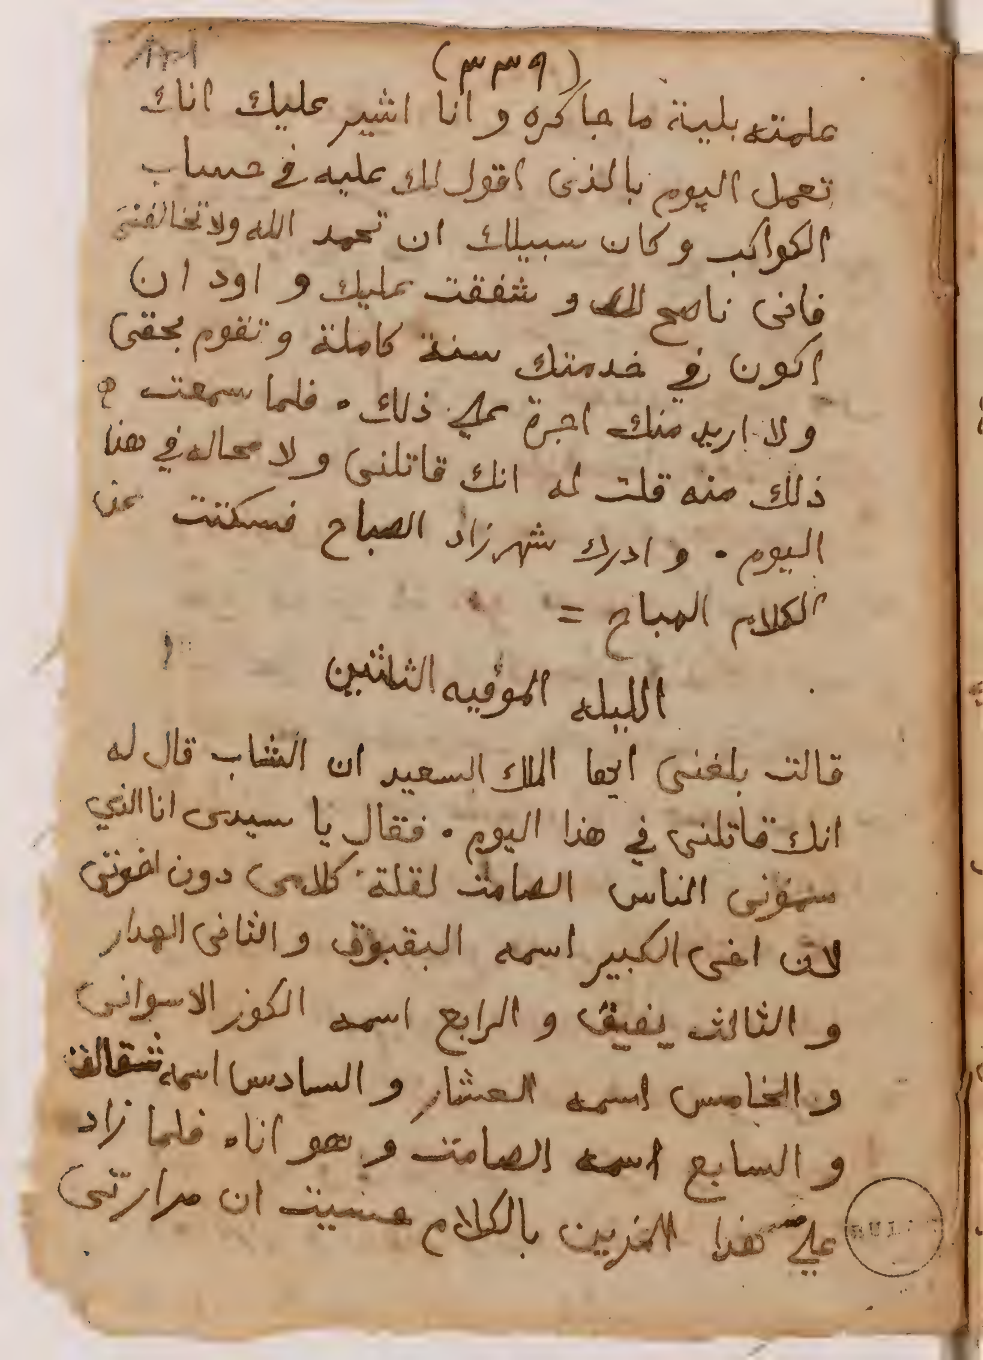 (٣٣٩)
علمته بلية ما جاكره وانا اشير عليك انك
تعمل اليوم بالذى اقول لك عليه فى حساب
الكواكب وكان سبيلك ان تحمد الله ولا تخالفنى
فانى ناصح لك و شفقت عليك و اود ان
اكون في خدمتك سنة كاملة وتقوم بحقى
ولا اريد منك اجرة علي ذلك . فلما سمعت
ذلك منه قلت له انك قاتلنى ولا محاله في هذا
اليوم . و ادرك شهرزاد الصباح فسكتت عن
الكلام المباح =
الليله الموفيه الثلاثين
قالت بلغنى ايها الملك السعيد ان الشاب قال له
انك قاتلنى في هذا اليوم . فقال يا سيدى انا الذي
سمونى الناس الصامت لقلة كلامى دون اخوتى
لان اخى الكبير اسمه البقبوق والثانى الهدار
و الثالث بقبق و الرابع اسمه الكوز الاسوانى
و الخامس اسمه العشار و السادس اسمه شقالق
و السابع اسمه الصامت وهو انا. فلما زاد
علي هذا المزين بالكلام حسيت ان مرارتى